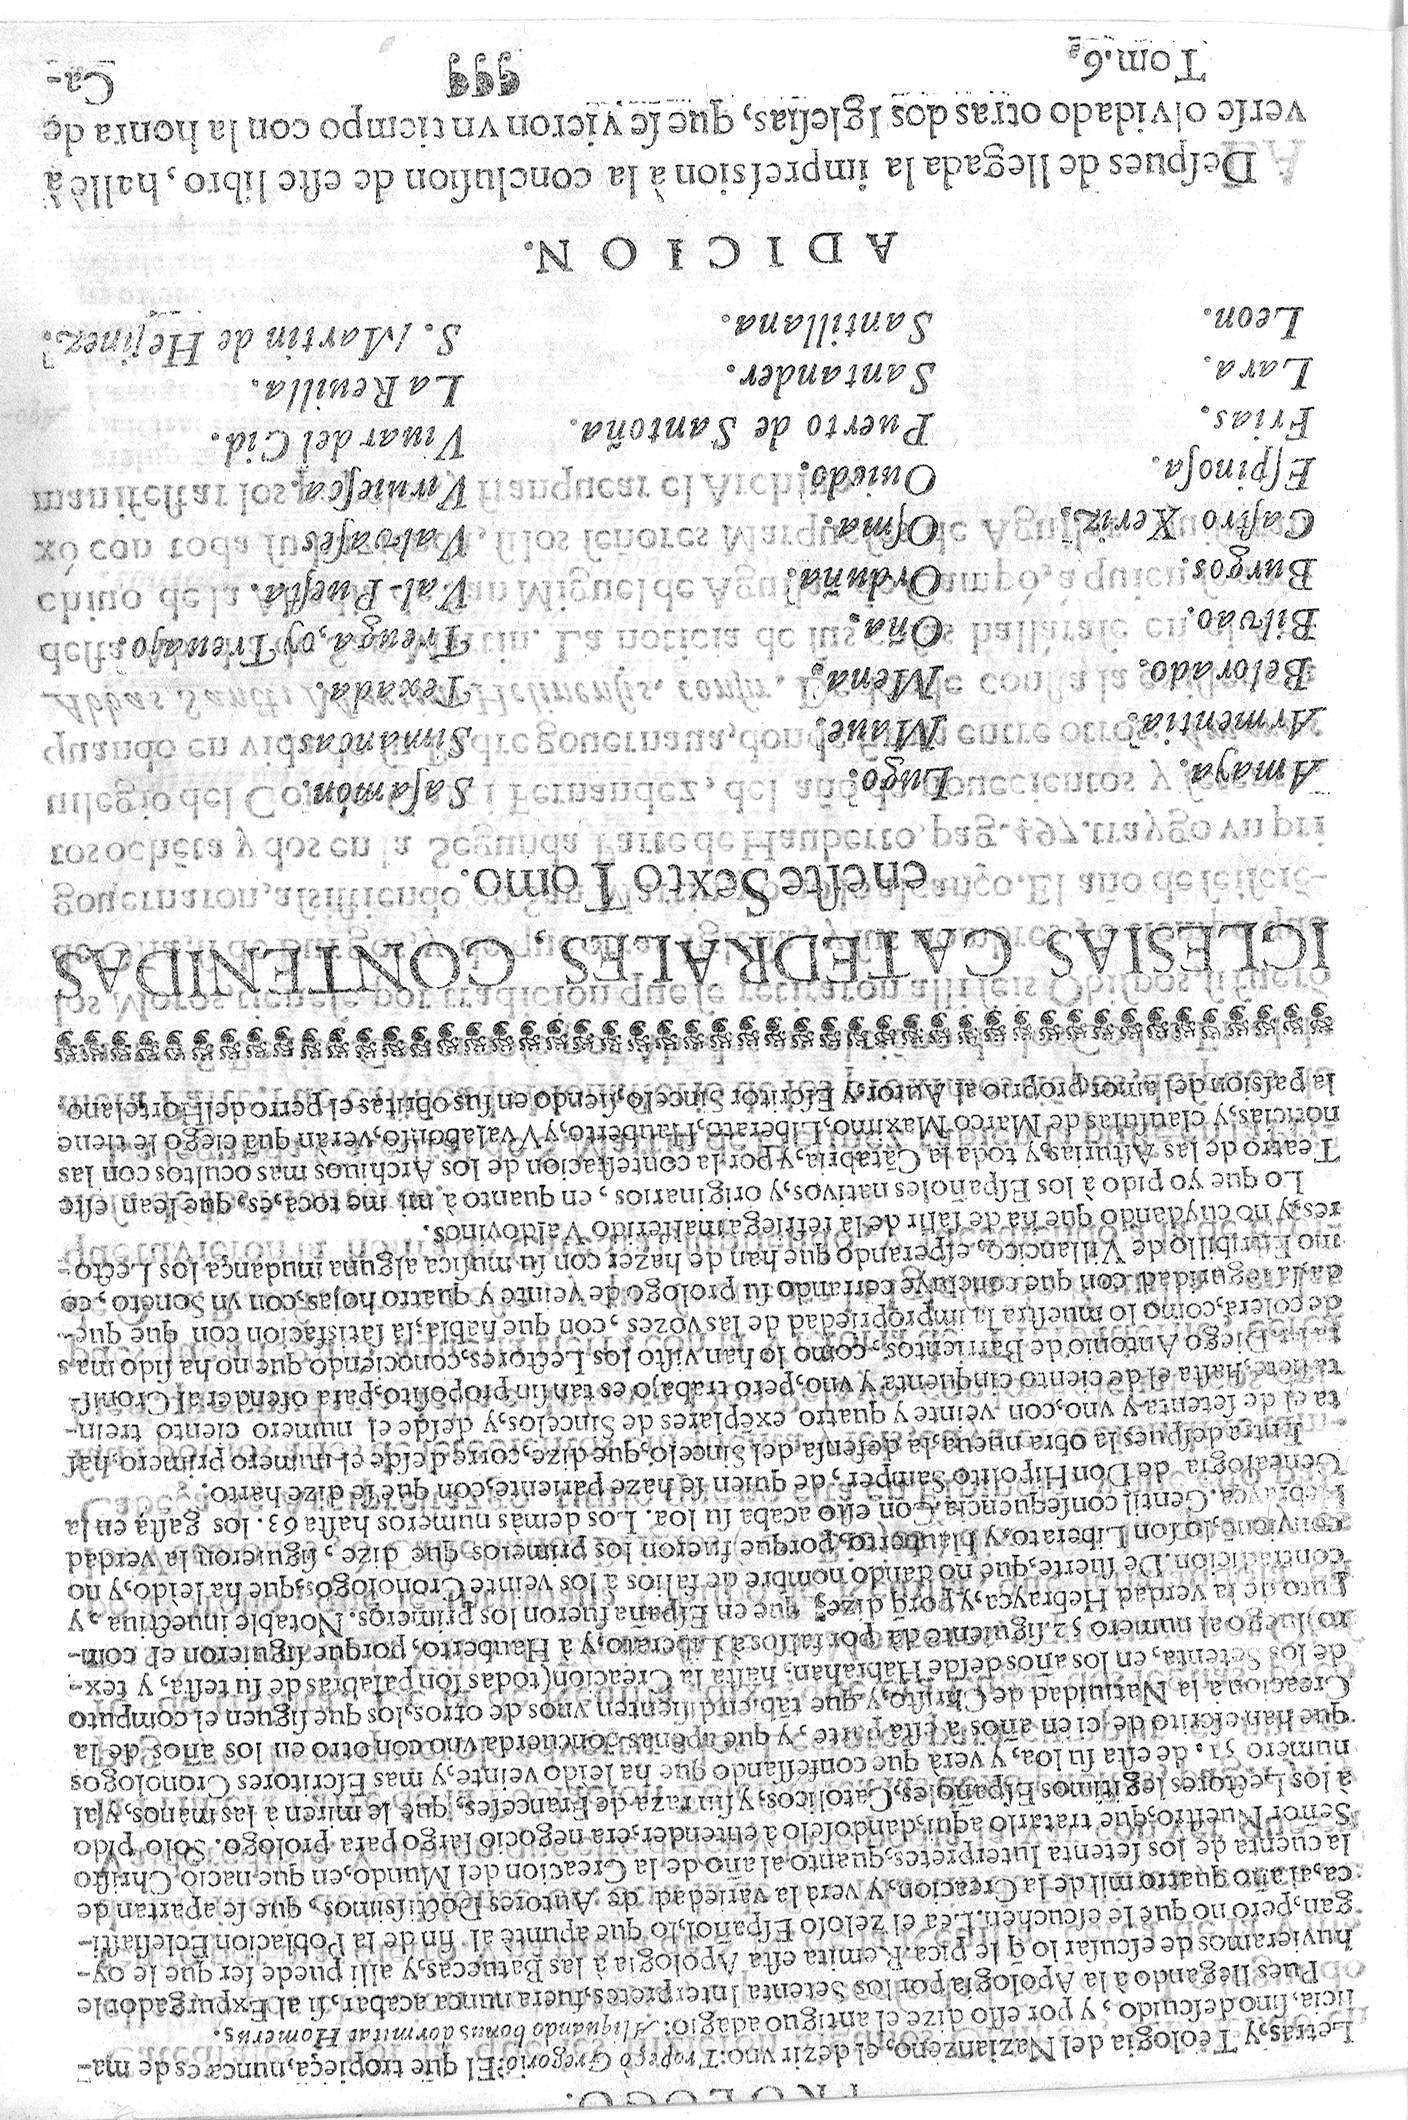 PROLOGO.
Letras, y Teologia del Nazianzeno, el dezir vno: Tropeçò Gregorio: El que tropieça, nunca es de ma-
licia, sino descuido, y por esso dize el antiguo adagio: Aliquando bonus dormitat Homerus.
Pues llegando à la Apologia por los Setenta Interpretes, fuera nunca acabar, si al Expurgador le
huvieramos de escusar lo q̃ le pica. Remita esta Apologia à las Batuecas, y alli puede ser que le oy-
gan, pero no que le escuchen. Lea el zeloso Español, lo que apuntè al fin de la Poblacion Eclesiasti-
ca, al año quatro mil de la Creacion, y verà la variedad de Autores Doctissimos, que se apartan de
la cuenta de los setenta Interpretes, quanto al año de la Creacion del Mundo, en que nacio Christo
Señor Nuestro, que tratarlo aqui, dandoselo à entender, era negocio largo para prologo. Solo pido
à los Lectores legitimos Españoles, Catolicos, y sin raza de Franceses, que le miren à las manos, y al
numero 51. de esta su loa, y verà que confessando que ha leido veinte, y mas Escritores Cronologos
que han escrito de cien años à esta parte, y que apenas concuerda vno con otro en los años de la
Creacion a la Natiuidad de Christo, y que tãbien dissienten vnos de otros, los que siguen el computo
de los Setenta, en los años desde Habrahan, hasta la Creacion (todas son palabras de su testa, y tex-
to) luego al numero 52. siguiente dà por falsos à Liberato, y à Hauberto, porque siguieron el com-
puto de la verdad Hebrayca, y porq̃ dize, que en España fueron los primeros. Notable inuectiua, y
contradicion. De suerte, que no dando nombre de falsos à los veinte Cronologos, que ha leido, y no
conuienẽ, lo son Liberato, y Hauberto, porque fueron los primeros que dize, siguieron la verdad
Hebrayca. Gentil consequencia. Con esto acaba su loa. Los demàs numeros hasta 63. los gasta en la
Genealogia de Don Hipolito Samper, de quien se haze pariente, con que se dize harto.
Entra despues la obra nueua, la defensa del Sincelo, que dize, corre desde el numero primero, has
ta el de setenta y vno, con veinte y quatro exẽplares de Sincelos, y desde el numero ciento trein-
ta siete, hasta el de ciento cinquenta y vno, pero trabajo es tan sin proposito, para ofender al Cronis-
ta D. Diego Antonio de Barrientos, como lo han visto los Lectores, conociendo que no ha sido mas
de colera, como lo muestra la impropriedad de las vozes, con que habla; la satisfacion con que que-
da, la seguridad con que concluye cerrando su prologo de veinte y quatro hojas, con vn Soneto, co
mo Estribillo de Villancico, esperando que han de hazer con su musica alguna mudança los Lecto-
res, y no cuydando que ha de salir de la refriega mal ferido Valdovinos.
Lo que yo pido à los Españoles nativos, y originarios, en quanto à mi me toca, es, que lean este
Teatro de las Asturias, y toda la Cãtabria, y por la contestacion de los Archiuos mas ocultos con las
noticias, y clausulas de Marco Maximo, Liberato, Hauberto, y Walabonso, veràn quã ciego le tiene
la passion del amor proprio al Autor, y Escritor Sincelo, siendo en sus obritas el perro del Hortelano.
IGLESIAS CATEDRALES, CONTENIDAS
en este Sexto Tomo.
Amaya. Lugo. Sasamòn.
Armentia. Maue. Simancas.
Belorado. Mena. Texada.
Bilvao. Oña. Treuga, oy Treuajo.
Burgos. Orduña. Val-Puesta.
Castro Xeriz. Osma. Valvases
Espinosa. Ouiedo. Viruiesca.
Frias. Puerto de Santoña. Viuar del Cid.
Lara. Santander. La Reuilla.
Leon. Santillana. S. Martin de Hejinez.
ADICION.
Despues de llegada la impression à la conclusion de este libro, hallè à
verse olvidado otras dos Iglesias, que se vieron vn tiempo con la honra de
Tom. 6. ¶¶¶ Ca-